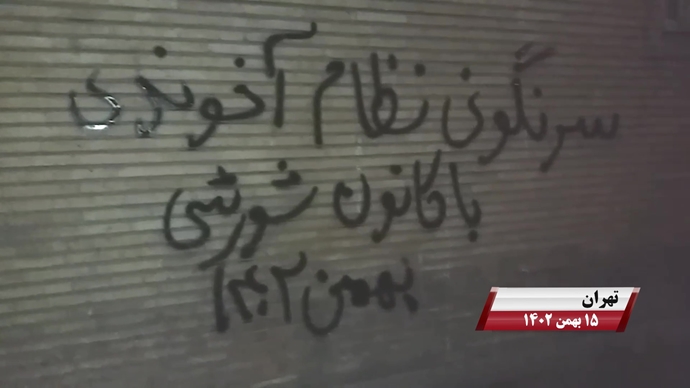 سرنگونی نظام آخوندی
با کانون شورشی
بهمن ۱۴۰۲
تهران
۱۵ بهمن ۱۴۰۲